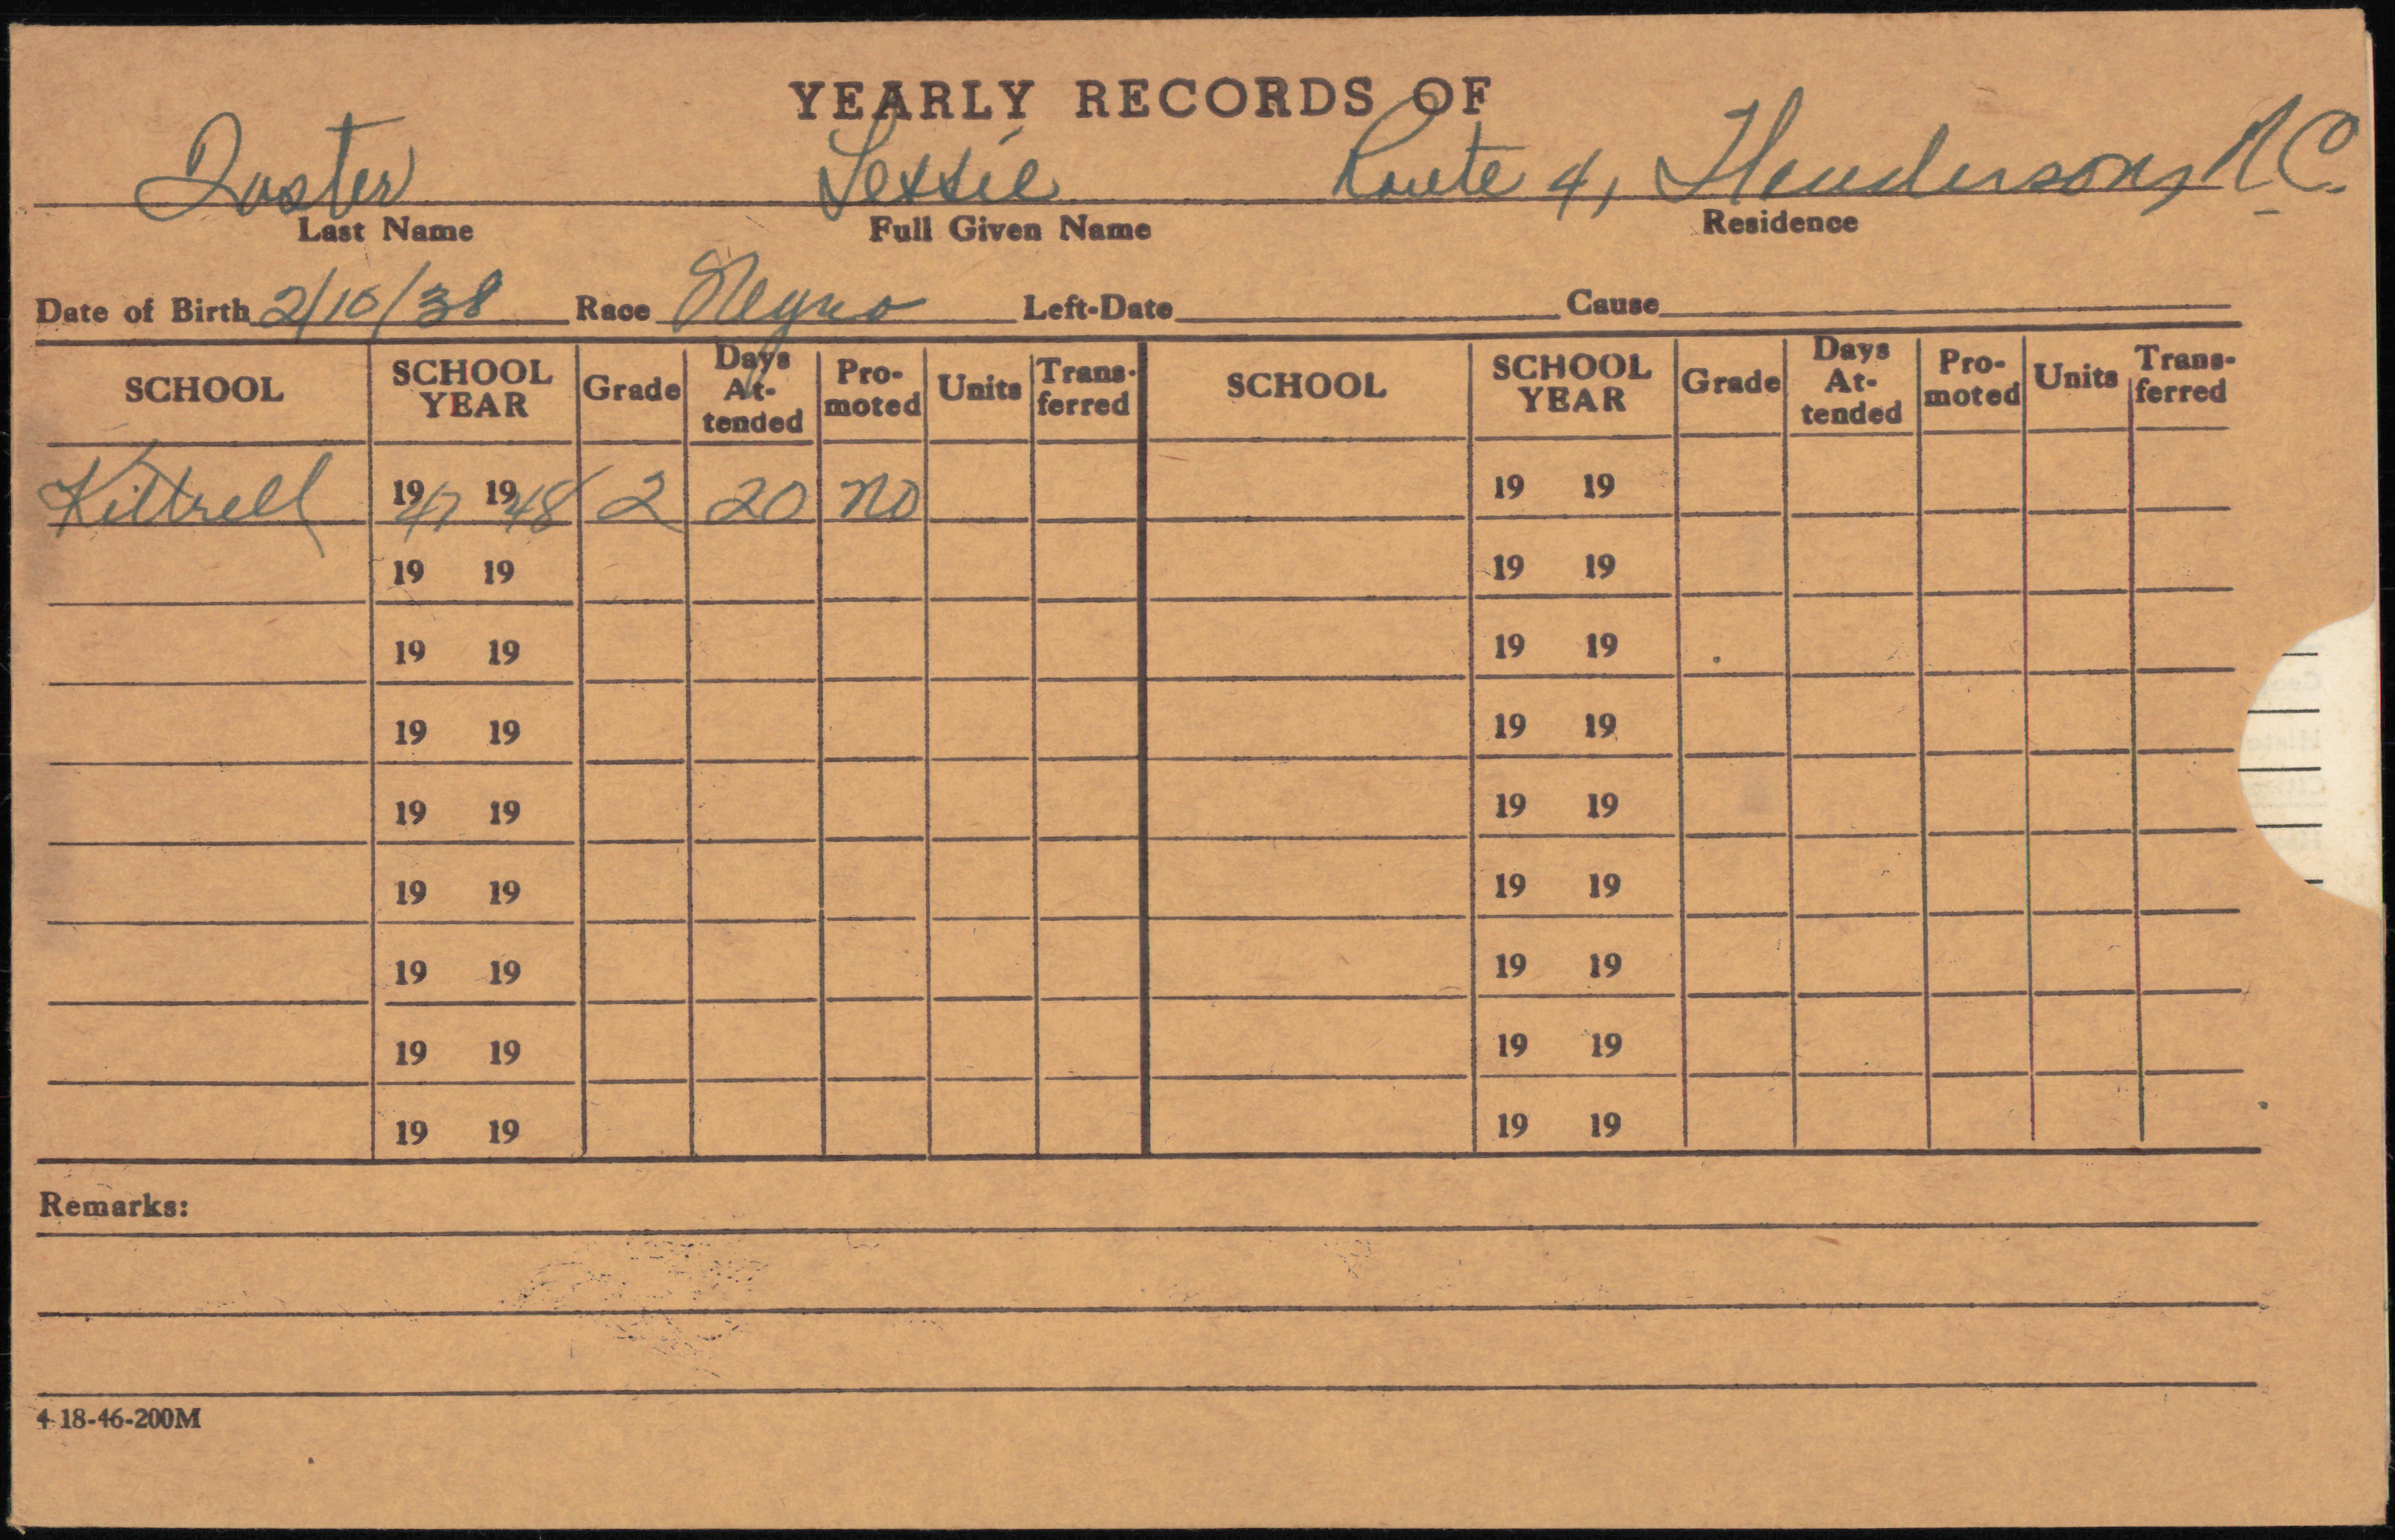 YEARLY RECORDS OF
Lessie Route 4, Henderson, N.C.
Last Name Full Given Name Residence
Date of Birth 2/10/38 Race Negro Left-Date Cause
SCHOOL SCHOOL YEAR Grade Days At-tended Pro-moted Units Trans-ferred SCHOOL SCHOOL YEAR Grade Days At-tended Pro-moted Units Trans-ferred
Kittrell 1947 1948 2 20 no 19 19
19 19 19 19
19 19 19 19
19 19 19 19
19 19 19 19
19 19 19 19
19 19 19 19
19 19 19 19
19 19 19 19
Remarks:
4-18-46-200M